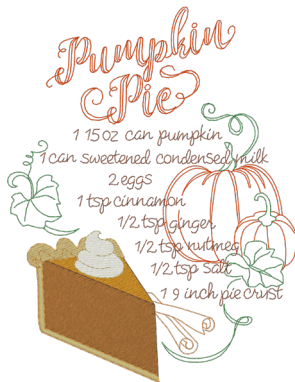 Pumpkin
Pie
1 15 oz can pumpkin
1 can sweetened condensed milk
2 eggs
1 tsp cinnamon
1/2 tsp ginger
1/2 tsp nutmeg
1/2 tsp salt
1 9 inch pie crust